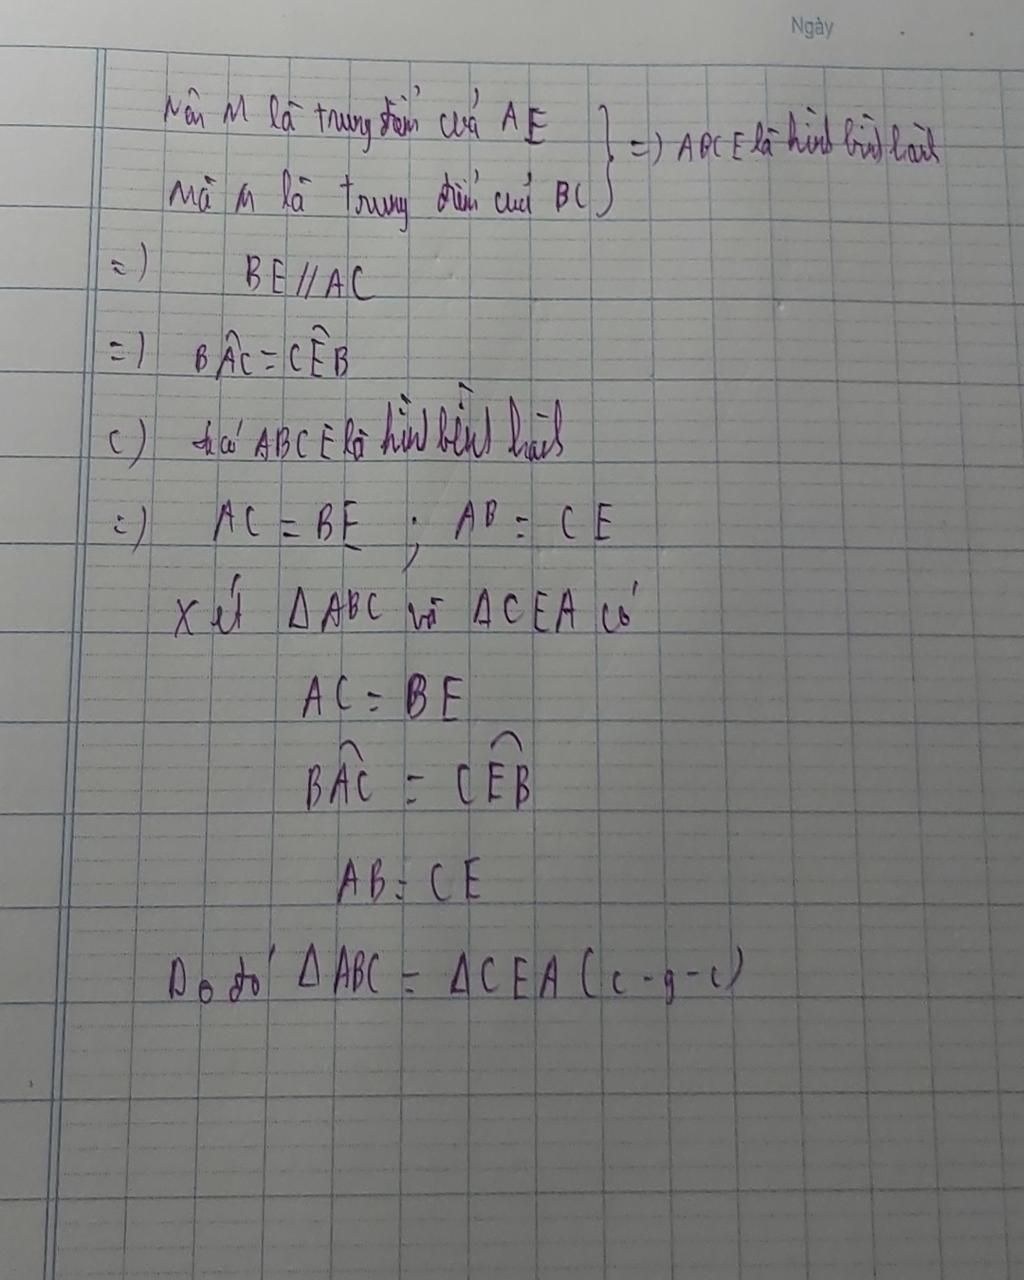 Ngày
Nên M là trung điểm của AE } => ABCE là hình bình hành
Mà M là trung điểm của BC
=> BE // AC
=> BÂC = CÊB
c) ta có ABCE là hình bình hành
=> AC = BE ; AB = CE
Xét Δ ABC và ΔCEA có
AC = BE
BÂC = CÊB
AB = CE
Do đó Δ ABC = ΔCEA (c-g-c)